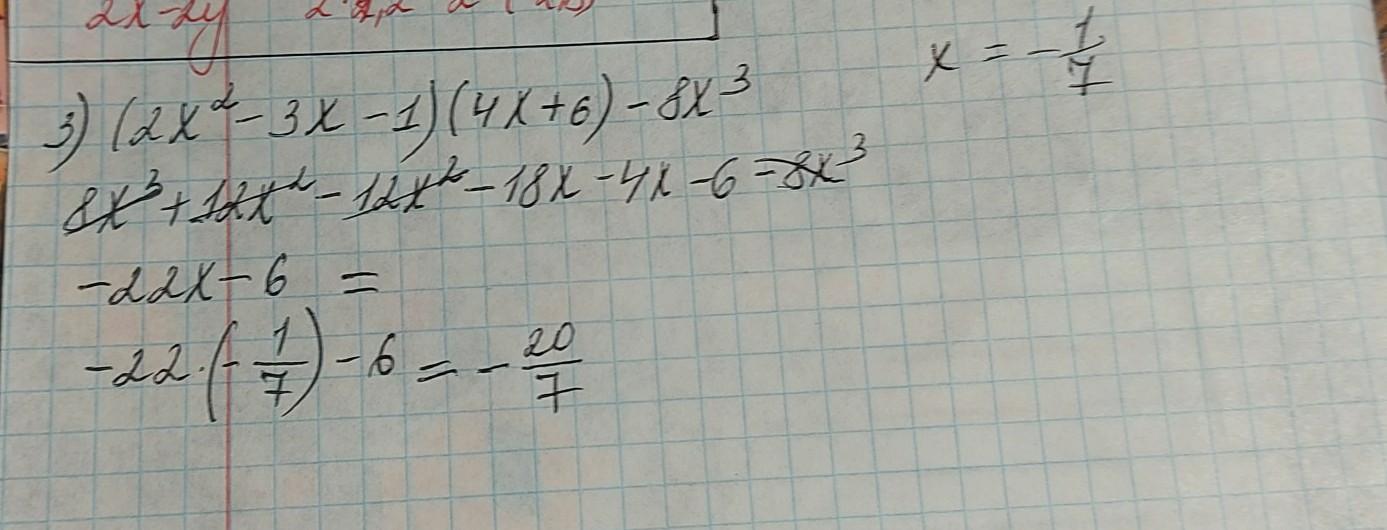 2x-2y
x = -1/7
3) (2x²-3x-1)(4x+6)-8x³
8x³+12x²-12x²-18x-4x-6-8x³
-22x-6 =
-22·(-1/7)-6 = -20/7